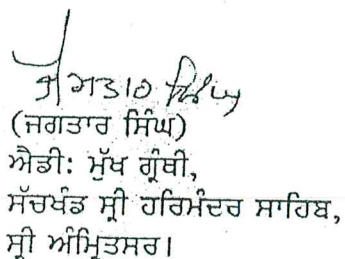 ਜਗਤਾਰ ਸਿੰਘ
(ਜਗਤਾਰ ਸਿੰਘ)
ਐਡੀ: ਮੁੱਖ ਗ੍ਰੰਥੀ,
ਸੱਚਖੰਡ ਸ੍ਰੀ ਹਰਿਮੰਦਰ ਸਾਹਿਬ,
ਸ੍ਰੀ ਅੰਮ੍ਰਿਤਸਰ।